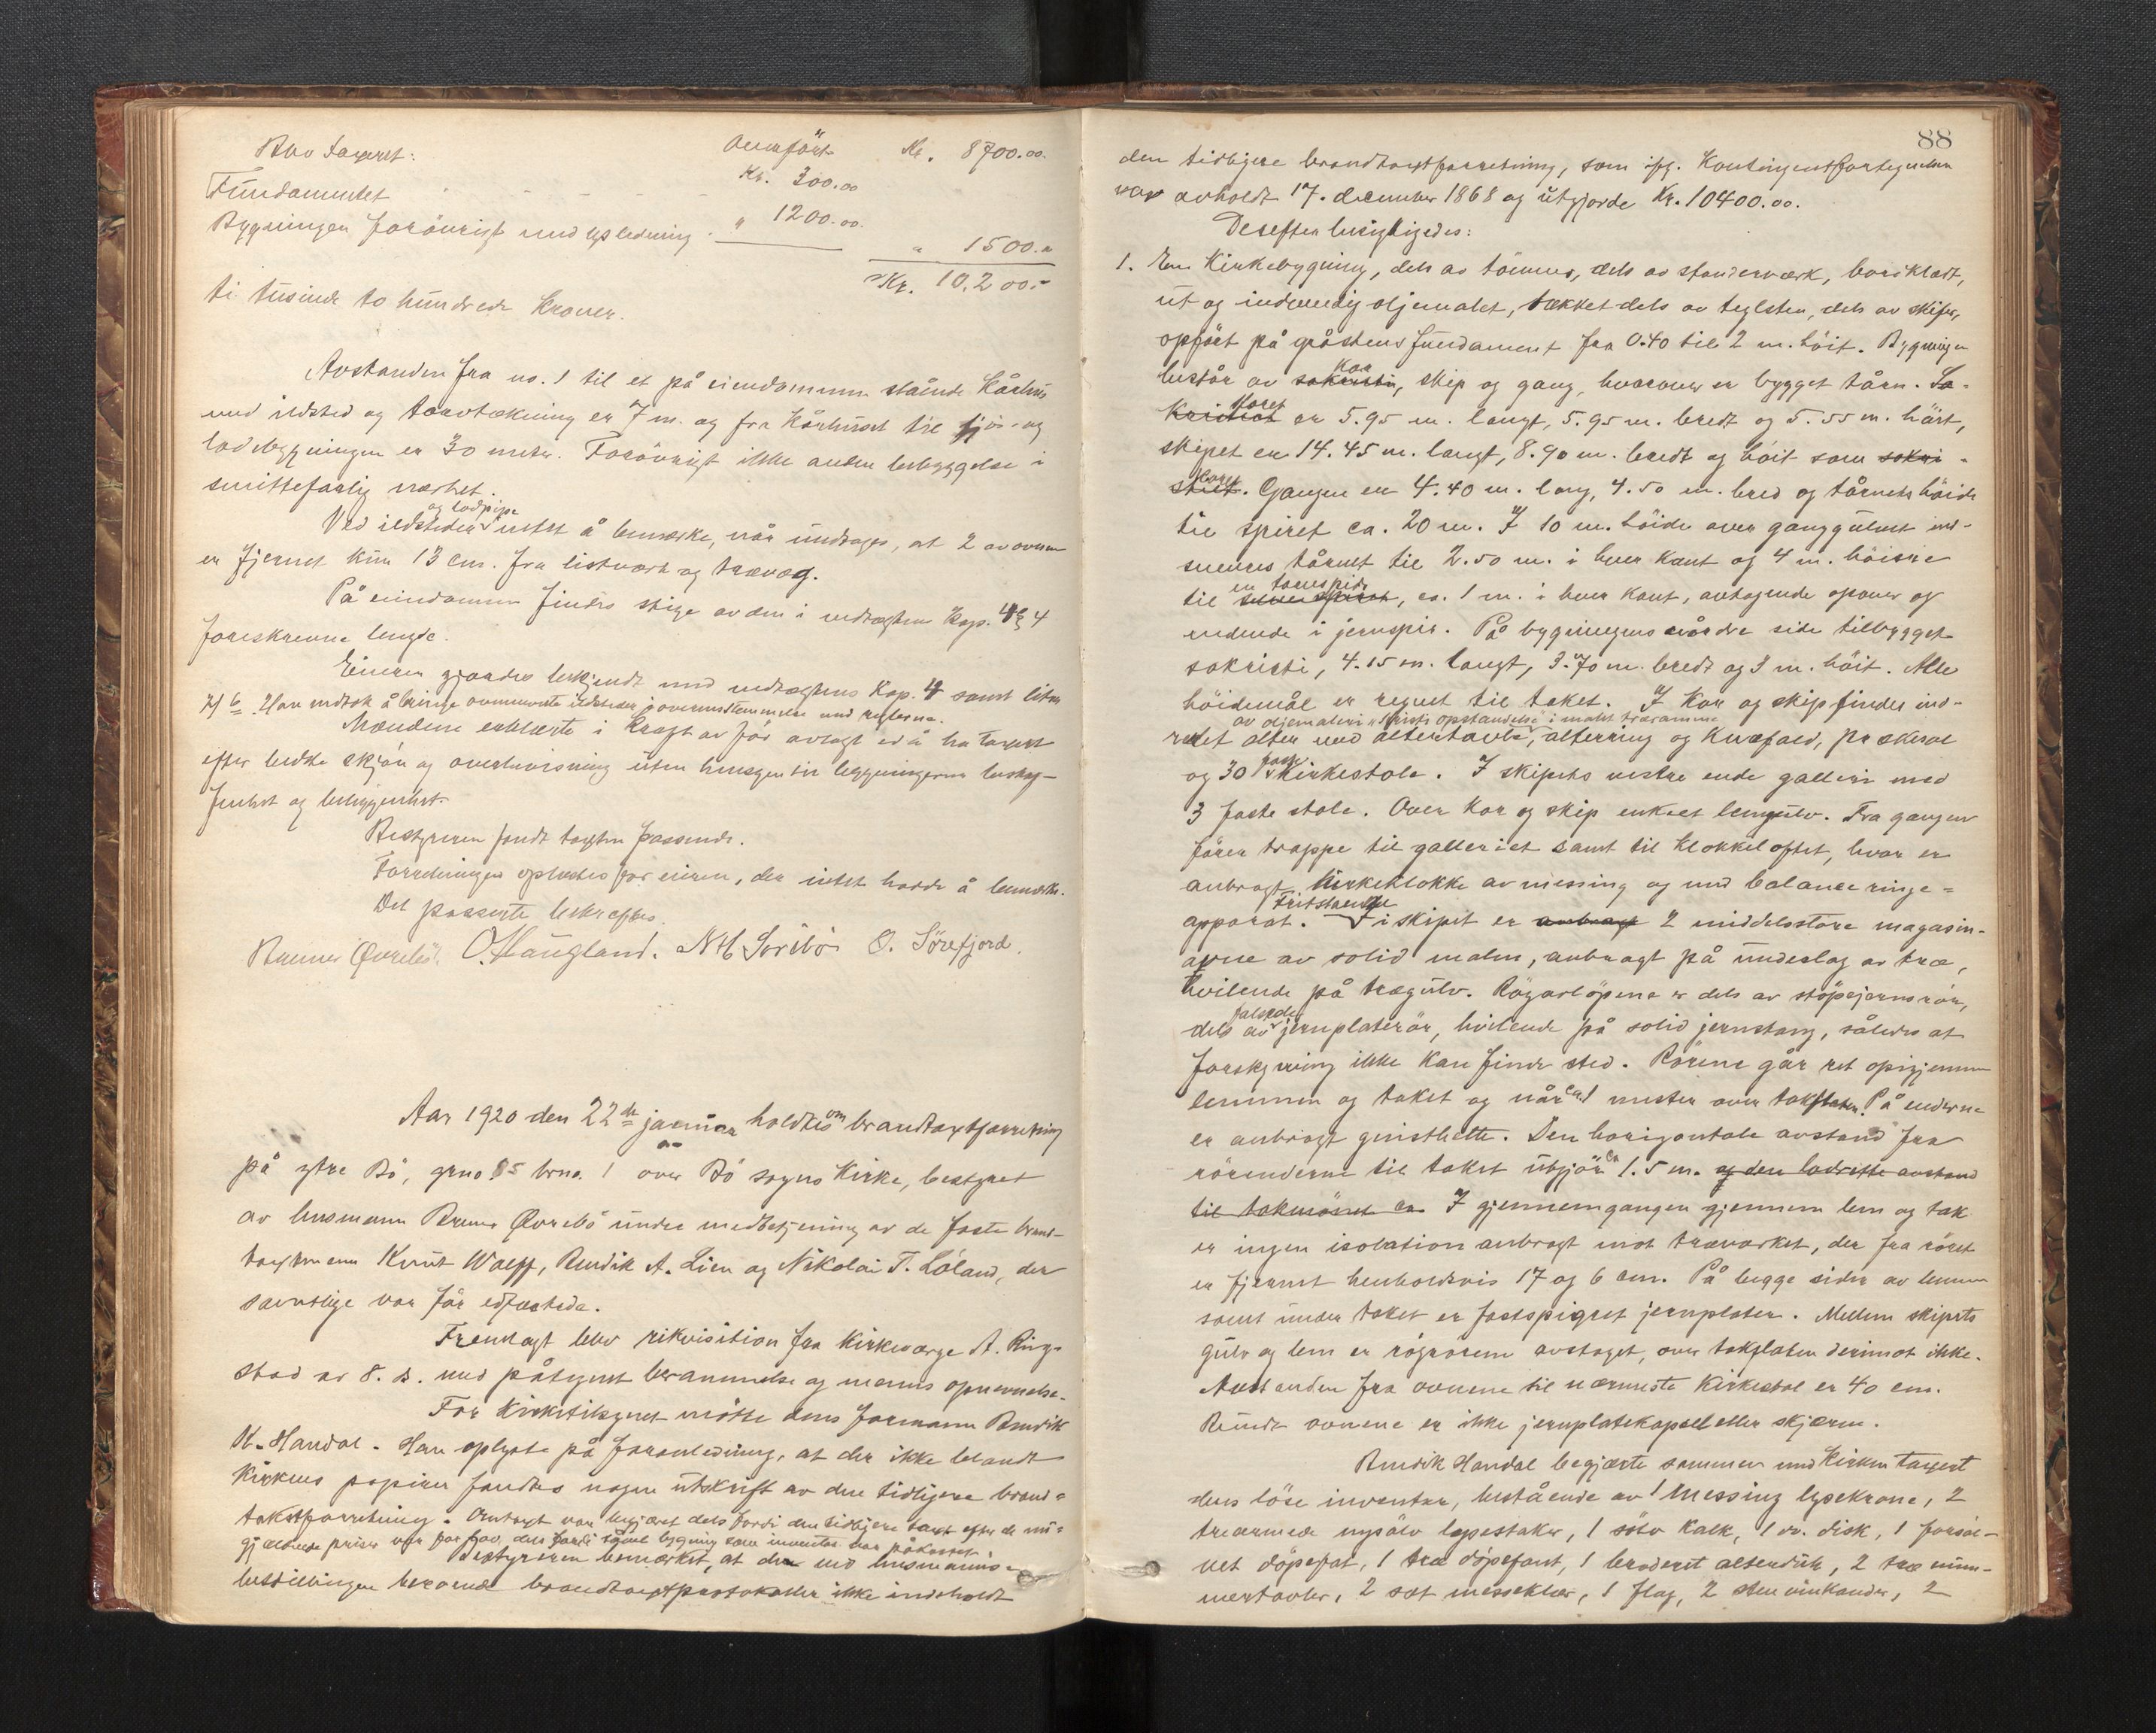 Blev taxeret:
Overført Kr. 8700.00.
Fundamentet Kr. 300.00
Bygningen forövrigt med isp ledning " 1200.00.
" 1500.00
Kr. 10.200.-
ti tusinde to hundrede kroner.
Avstanden fra no. 1 til et på eiendommen stående kårhus
med ildsted og torvtækning er 7 m. og fra kårhuset til fjös- og
ladebygningen er 30 meter. Forövrigt ikke anden bebyggelse i
smittefarlig nærhet.
og lodpipe
Ved ildsteder intet å bemærke, når undtages, at 2 av ovnene
er fjernet kun 13 cm. fra listverk og trævæg.
På eiendommen findes stige av den i vedtægten Kap. 4 § 4
foreskrevne lengde.
Eieren gjordes bekjendt med vedtægtens Kap. 4 samt litra
Han vedtok å bringe ovennevnte ildsteder i overensstemmelse med reglerne.
Mændene erklærte i kraft av för avlagt ed å ha taxert
efter bedste skjön og overbevisning uten hensyn til bygningernes beskaf-
fenhet og beliggenhet.
Bestyreren fandt taxten passende.
Forretningen oplæstes for eieren, der intet hadde å bemærke.
Det passerte bekræftes.
Rasmus Øvrebö. O. Haugland. N H Soribö O. Sörefjord.
Aar 1920 den 22de januar holdtes om brandtaxtforretning
på ytre Bö, grno 85 brno. 1 over Bö sogns kirke, bestyret
av lensmann Rasmus Øvrebö under medbetjening av de faste brand-
taxtmenn Knut Waeff, Bendik A. Lien og Nikolai T. Löland, der
samtlige var för edfæstede.
Fremlagt blev rikvisition fra kirkeverge A. Ring-
stad av 8. ds. med påtegnet berammelse og menns opnevnelse.
For kirketilsynet mötte dens formann Bendik
K. Handal. Han oplyste på foranledning, at der ikke blandt
kirkens papirer fandtes nogen utskrift av den tidligere brand-
takstforretning. Omtaxt var begjæret dels fordi den tidligere taxt efter de nu-
gjældende priser var for lav, dels fordi såvel bygning som inventar var påkostet
Bestyreren bemerket, at den ved lensmanns-
bestillingen beroende brandtaxtprotokoller ikke indeholdt
88
den tidligere brandtaxtforretning, som ifg. Kontingentfortegnelsen
var avholdt 17. december 1868 og utgjorde Kr. 10400.00.
Derefter besigtigedes:
1. En Kirkebygning, dels av tömmer, dels av standerverk, bordklædt,
ut og indvendig oljemalet, tækket dels av teglsten, dels av skifer,
opfört på gråstens fundament fra 0.40 til 2 m. höit. Bygningen
Kor
består av sakristi, skip og gang, hvorover er bygget tårn. Sa-
Koret
kristiet er 5.95 m. langt, 5.95 m. bredt og 5.55 m. höit,
skipet er 14.45 m. langt, 8.90 m. bredt og höit som sakri-
Koret
stiet. Gangen er 4.40 m. lang, 4.50 m. bred og tårnets höide
til spiret ca. 20 m. I 10 m. höide over ganggulvet ind-
snevres tårnet til 2.50 m. i hver kant og 4 m. höiere
en tårnspids
til selve spiret, ca. 1 m. i hver kant, avtagende opover og
endende i jernspir. På bygningens nordre side tilbygget
sakristi, 4.15 m. langt, 3.70 m. bredt og 3 m. höit. Alle
höidemål er regnet til taket. I Kor og skip findes ind-
av oljemaleri "Kristi opstandelse" i malt træramme
redet alter med altertavle, alterring og knæfald, prækestol
faste
og 30 kirkestole. I skipets vestre ende galleri med
3 faste stole. Over Kor og skip enkelt lemgulv. Fra gangen
förer trappe til galleriet samt til klokkeloftet, hvor er
anbragt kirkeklokke av messing og med balance ringe-
Fritstaende
apparat. I skipet er anbragt 2 middelsstore magasin-
ovne av solid malm, anbragt på underlag av træ,
hvilende på trægulv. Rögavlöpene er dels av stöpejernsrör,
falsede
dels av jernplaterör, hvilende på solid jernstang, således at
forskyvning ikke kan finde sted. Rörene går ret op igjennem
lemmen og taket og når ca 1 meter over takflaten. På enderne
er anbragt gnisthette. Den horizontale avstand fra
rörenderne til taket utgjör ca 1.5 m. og den lodrette avstand
til takmönet ca. I gjennemgangen gjennem lem og tak
er ingen isolation anbragt mot træverket, der fra röret
er fjernet henholdsvis 17 og 6 cm. På begge sider av lemmen
samt under taket er fastspigret jernplater. Mellem skipets
gulv og lem er rögrörene avstaget, over takflaten derimot ikke.
Avstanden fra ovnene til nærmeste kirkestol er 40 cm.
Rundt ovnene er ikke jernplatekapsel eller skjærm.
Bendik Handal begjærte sammen med kirken taxert
dens löse inventar, bestående av 1 messing lysekrone, 2
trearmede nysölv lysestaker, 1 sölv kalk, 1 do. disk, 1 forsöl-
vet döpefat, 1 træ döpefont, 1 broderet alterduk, 2 træ num-
mertavler, 2 sæt messeklær, 1 flag, 2 sten vinkander, 2